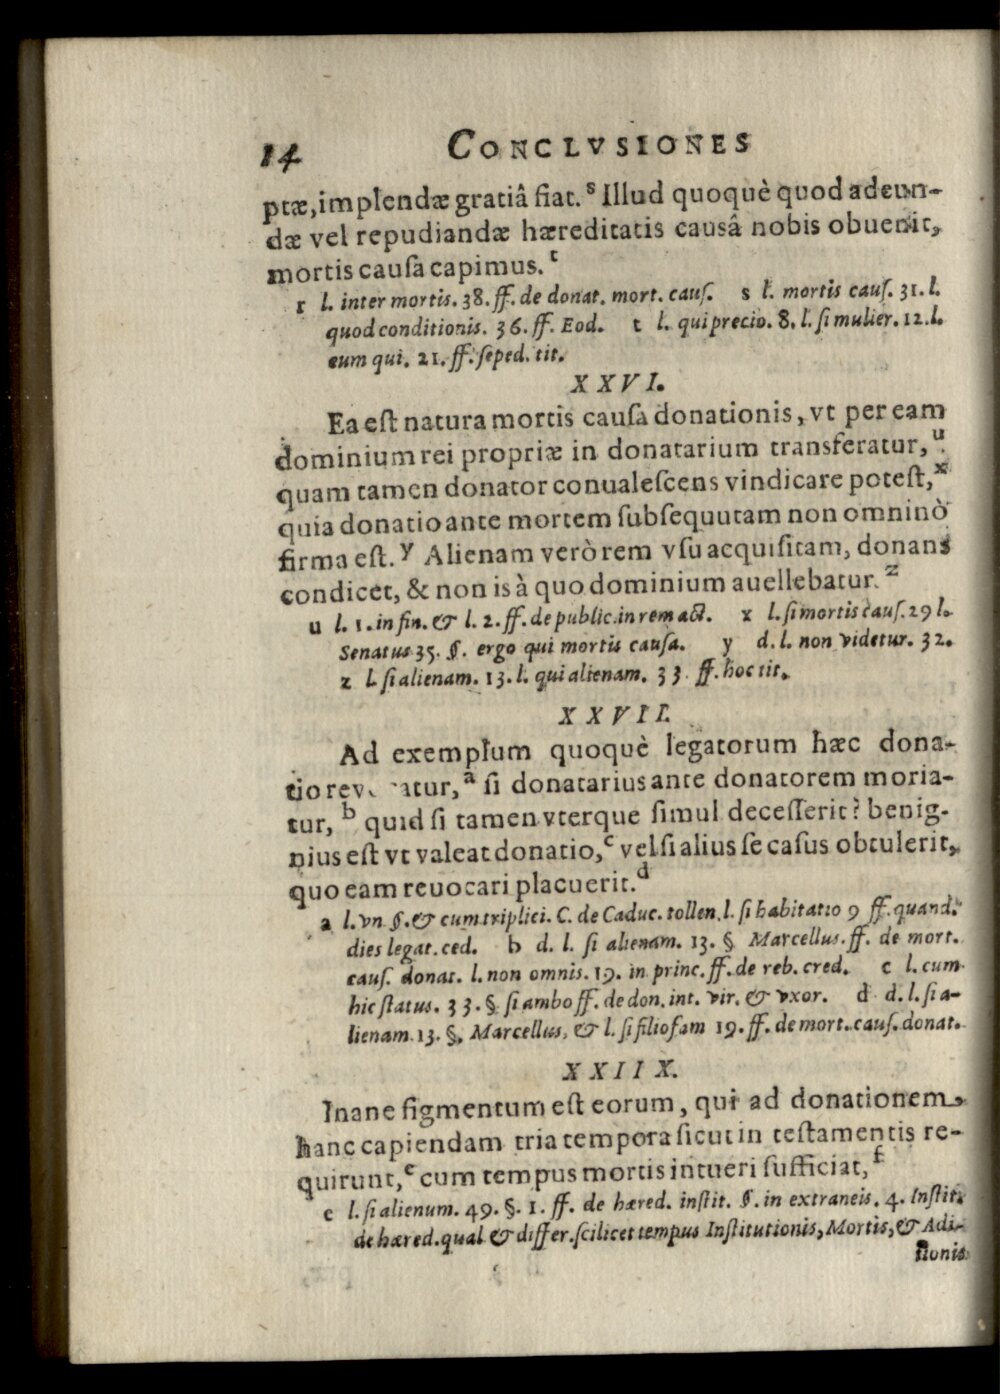 14 CONCLVSIONES
ptæ, implendæ gratiâ fiat.ˢ Illud quoquè quod adeun-
dæ vel repudiandæ hæreditatis causâ nobis obuenit,
mortis causa capimus.ᵗ
r l. inter mortis. 38. ff. de donat. mort. cauſ. s l. mortis cauſ. 31. l.
quod conditionis. 36. ff. Eod. t l. qui precio. 8. l. ſi mulier. 12. l.
eum qui. 21. ff. ſeped. tit.
XXVI.
Ea eſt natura mortis cauſa donationis, vt per eam
dominium rei propriæ in donatarium transferatur,ᵘ
quam tamen donator conualeſcens vindicare poteſt,ˣ
quia donatio ante mortem ſubſequutam non omninò
firma eſt.ʸ Alienam verò rem vſu acquiſitam, donans
condicet, & non is à quo dominium auellebatur.ᶻ
u l. 1. in fin. & l. 2. ff. de public. in rem act. x l. ſi mortis cauſ. 29 l.
Senatus 35. §. ergo qui mortis cauſa. y d. l. non videtur. 32.
z l. ſi alienam. 13. l. qui alienam. 33. ff. hoc tit.
XXVII.
Ad exemplum quoquè legatorum hæc dona-
tio atur,ᵃ ſi donatarius ante donatorem moria-
tur,ᵇ quid ſi tamen vterque ſimul deceſſerit? benig-
nius eſt vt valeat donatio,ᶜ vel ſi alius ſe caſus obtulerit,
quo eam reuocari placuerit.ᵈ
a l. vn §. & cum triplici. C. de Caduc. tollen. l. ſi habitatio 9 ff. quand.
dies legat. ced. b d. l. ſi alienam. 13. § Marcellus. ff. de mort.
cauſ. donat. l. non omnis. 19. in princ. ff. de reb. cred. c l. cum
hic ſtatus. 33. § ſi ambo ff. de don. int. vir. & vxor. d d. l. ſi a-
lienam. 13. §. Marcellus, & l. ſi filiofam 19. ff. de mort. cauſ. donat.
XXIIX.
Inane figmentum eſt eorum, qui ad donationem
hanc capiendam tria tempora ſicut in teſtamentis re-
quirunt,ᵉ cum tempus mortis intueri ſufficiat,ᶠ
e l. ſi alienum. 49. §. 1. ff. de hæred. inſtit. §. in extraneis. 4. Inſtit.
de hæred. qual & differ. ſcilicet tempus Inſtitutionis, Mortis, & Adi-
tionis